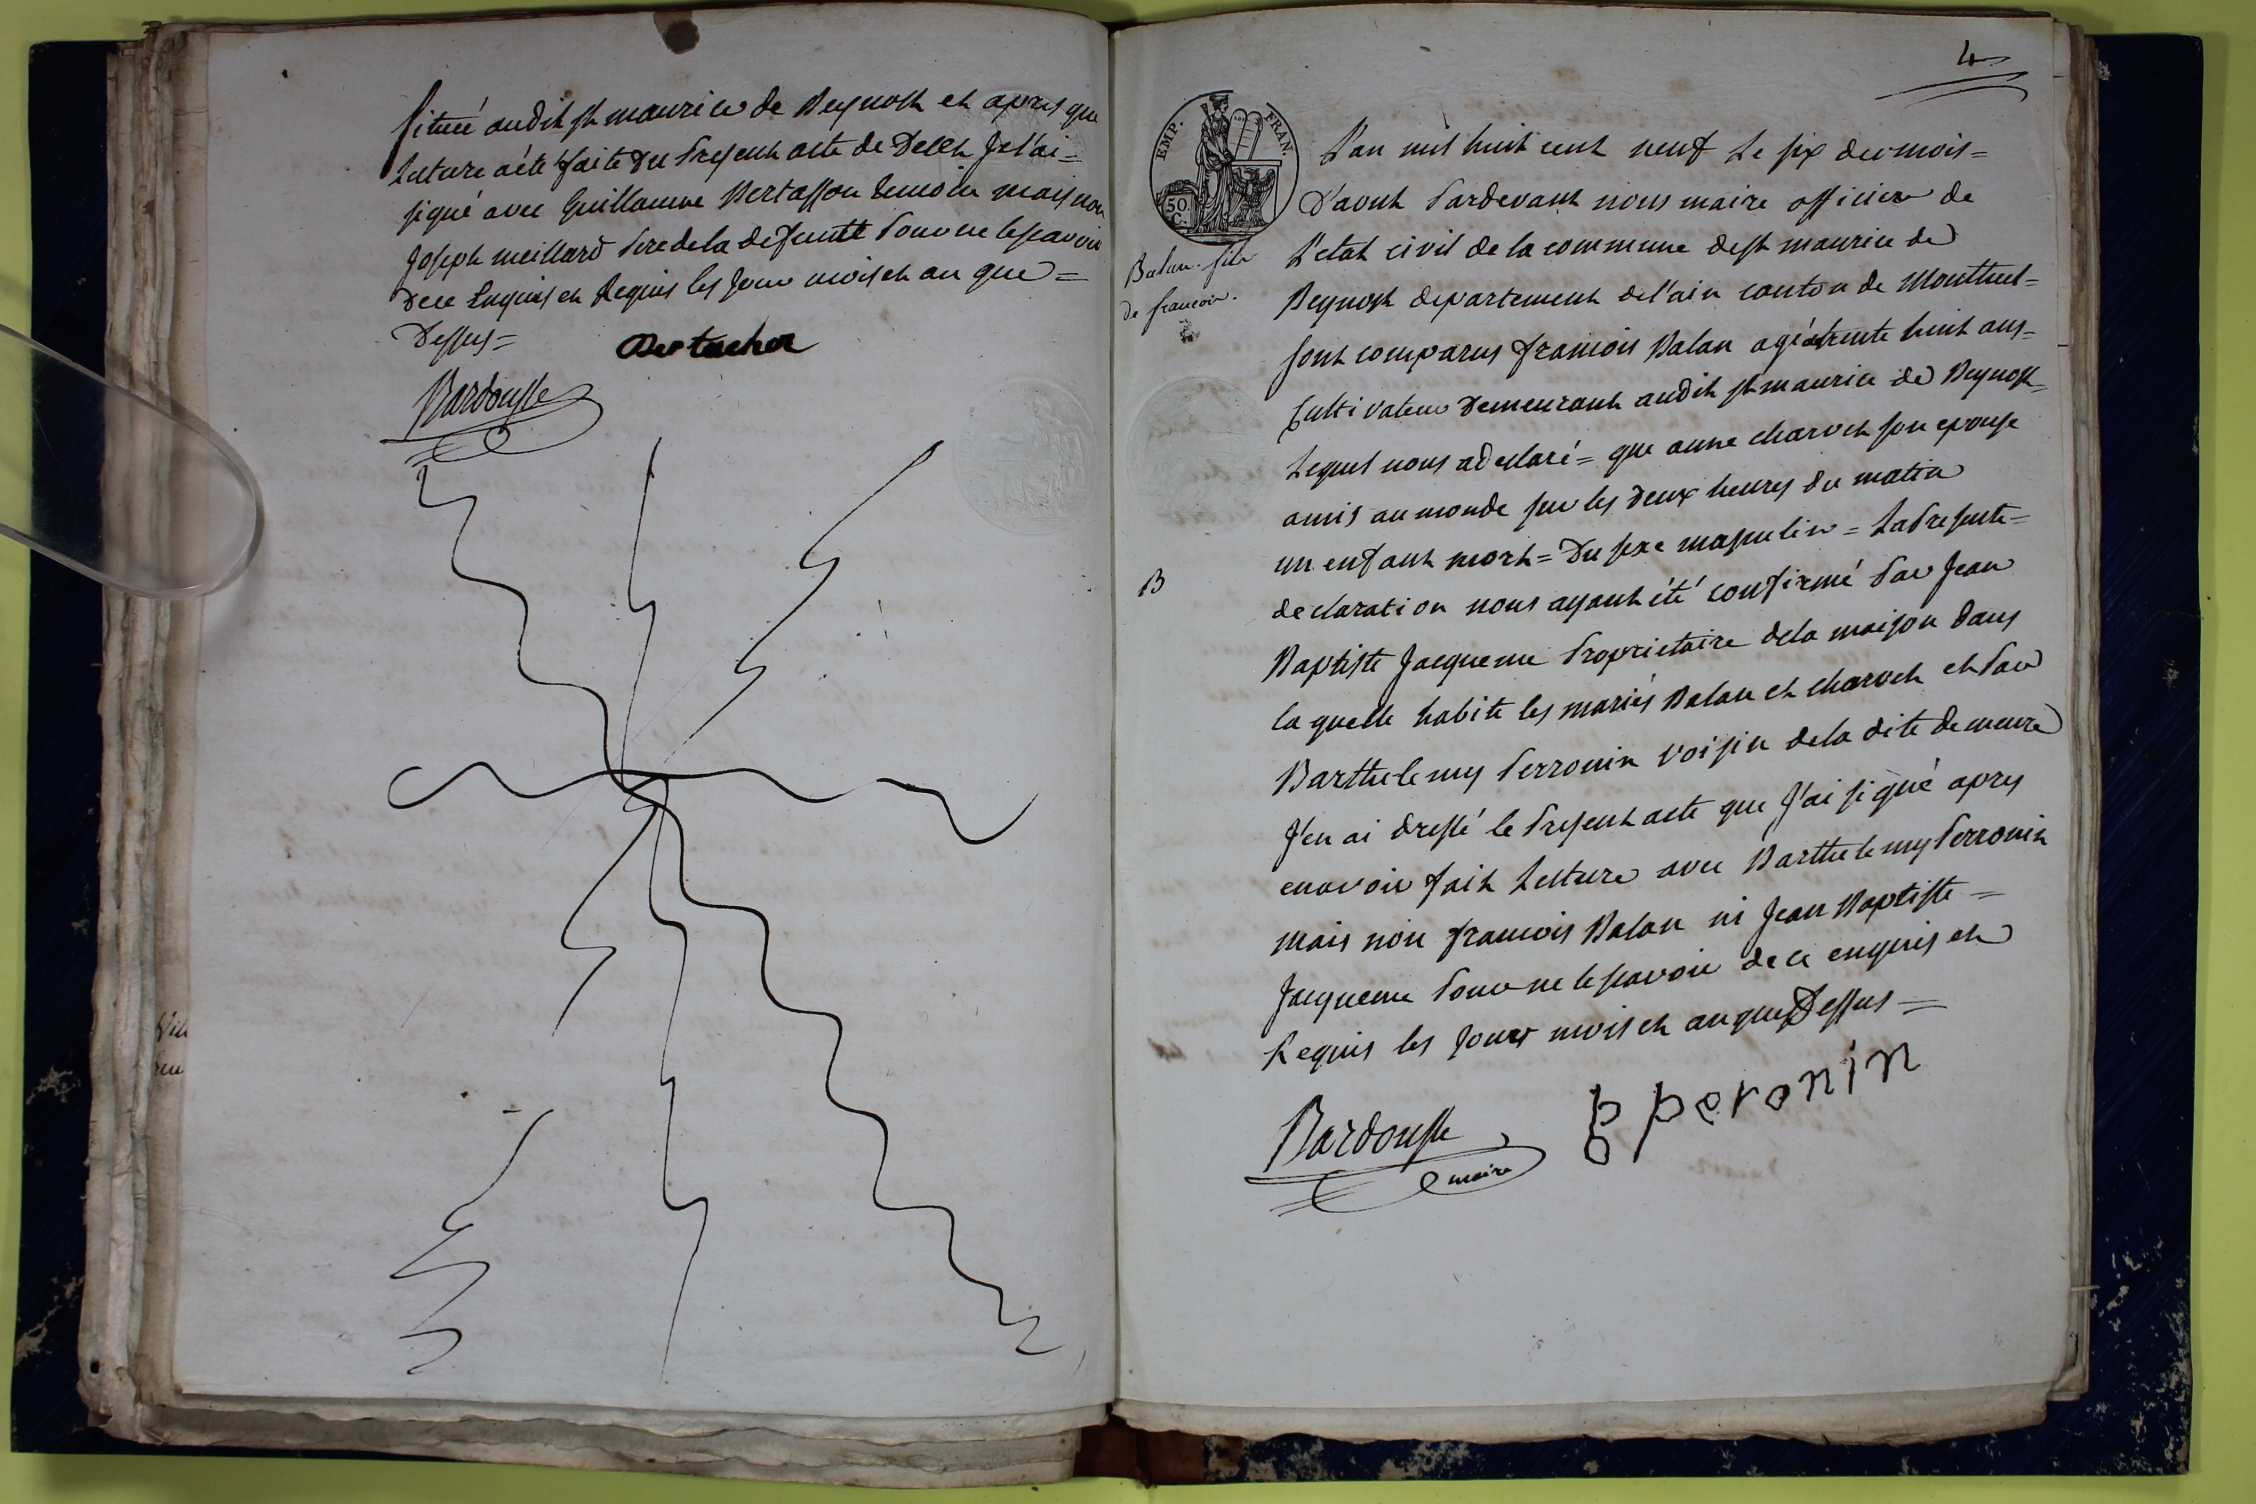 située audit st maurice de Beynost et apres que
Lecture a été faite du present acte de Deces Je l'ai =
signé avec Guillaume Bertasson temoin mais non
Joseph meillard Pere de la defunte Pour ne le scavoir
De ce Enquis et Requis les Jour mois et an que =
Dessus =
Bardousse
4
EMP. FRAN.
50 C.
Balan fils
de francois.
L'an mil huit cent neuf Le six du mois =
D'aout Pardevant nous maire officier de
L'etat civil de la commune de st maurice de
Beynost departement de l'ain canton de Montluel =
sont comparus francois Balan agé de trente huit ans =
Cultivateur Demeurant audit st maurice de Beynost =
Lequel nous a declaré = que anne charvet son epouse
a mis au monde sur les deux heures du matin
un enfant mort = Du sexe masculin = La Presente =
B
declaration nous ayant été confirmé Par Jean
Baptiste Jacqueme Proprietaire de la maison dans
la quelle habite les mariés Balan et charvet et Par
Barthelemy Perronin voisin de la dite demeure
J'en ai dressé le Present acte que J'ai signé apres
en avoir fait Lecture avec Barthelemy Perronin
mais non francois Balan ni Jean Baptiste =
Jacqueme Pour ne le scavoir de ce enquis et
Requis les Jours mois et an que Dessus =
Bardousse
maire
B peronin